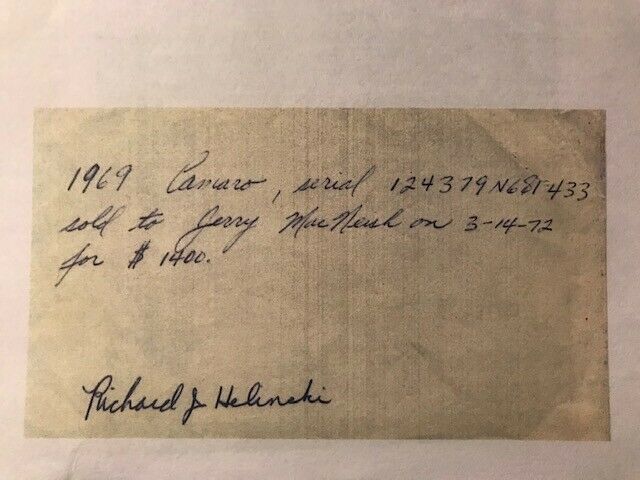 1969 Camaro, serial 124379N681433
sold to Jerry MacNeish on 3-14-72
for $ 1400.
Richard J Helinski